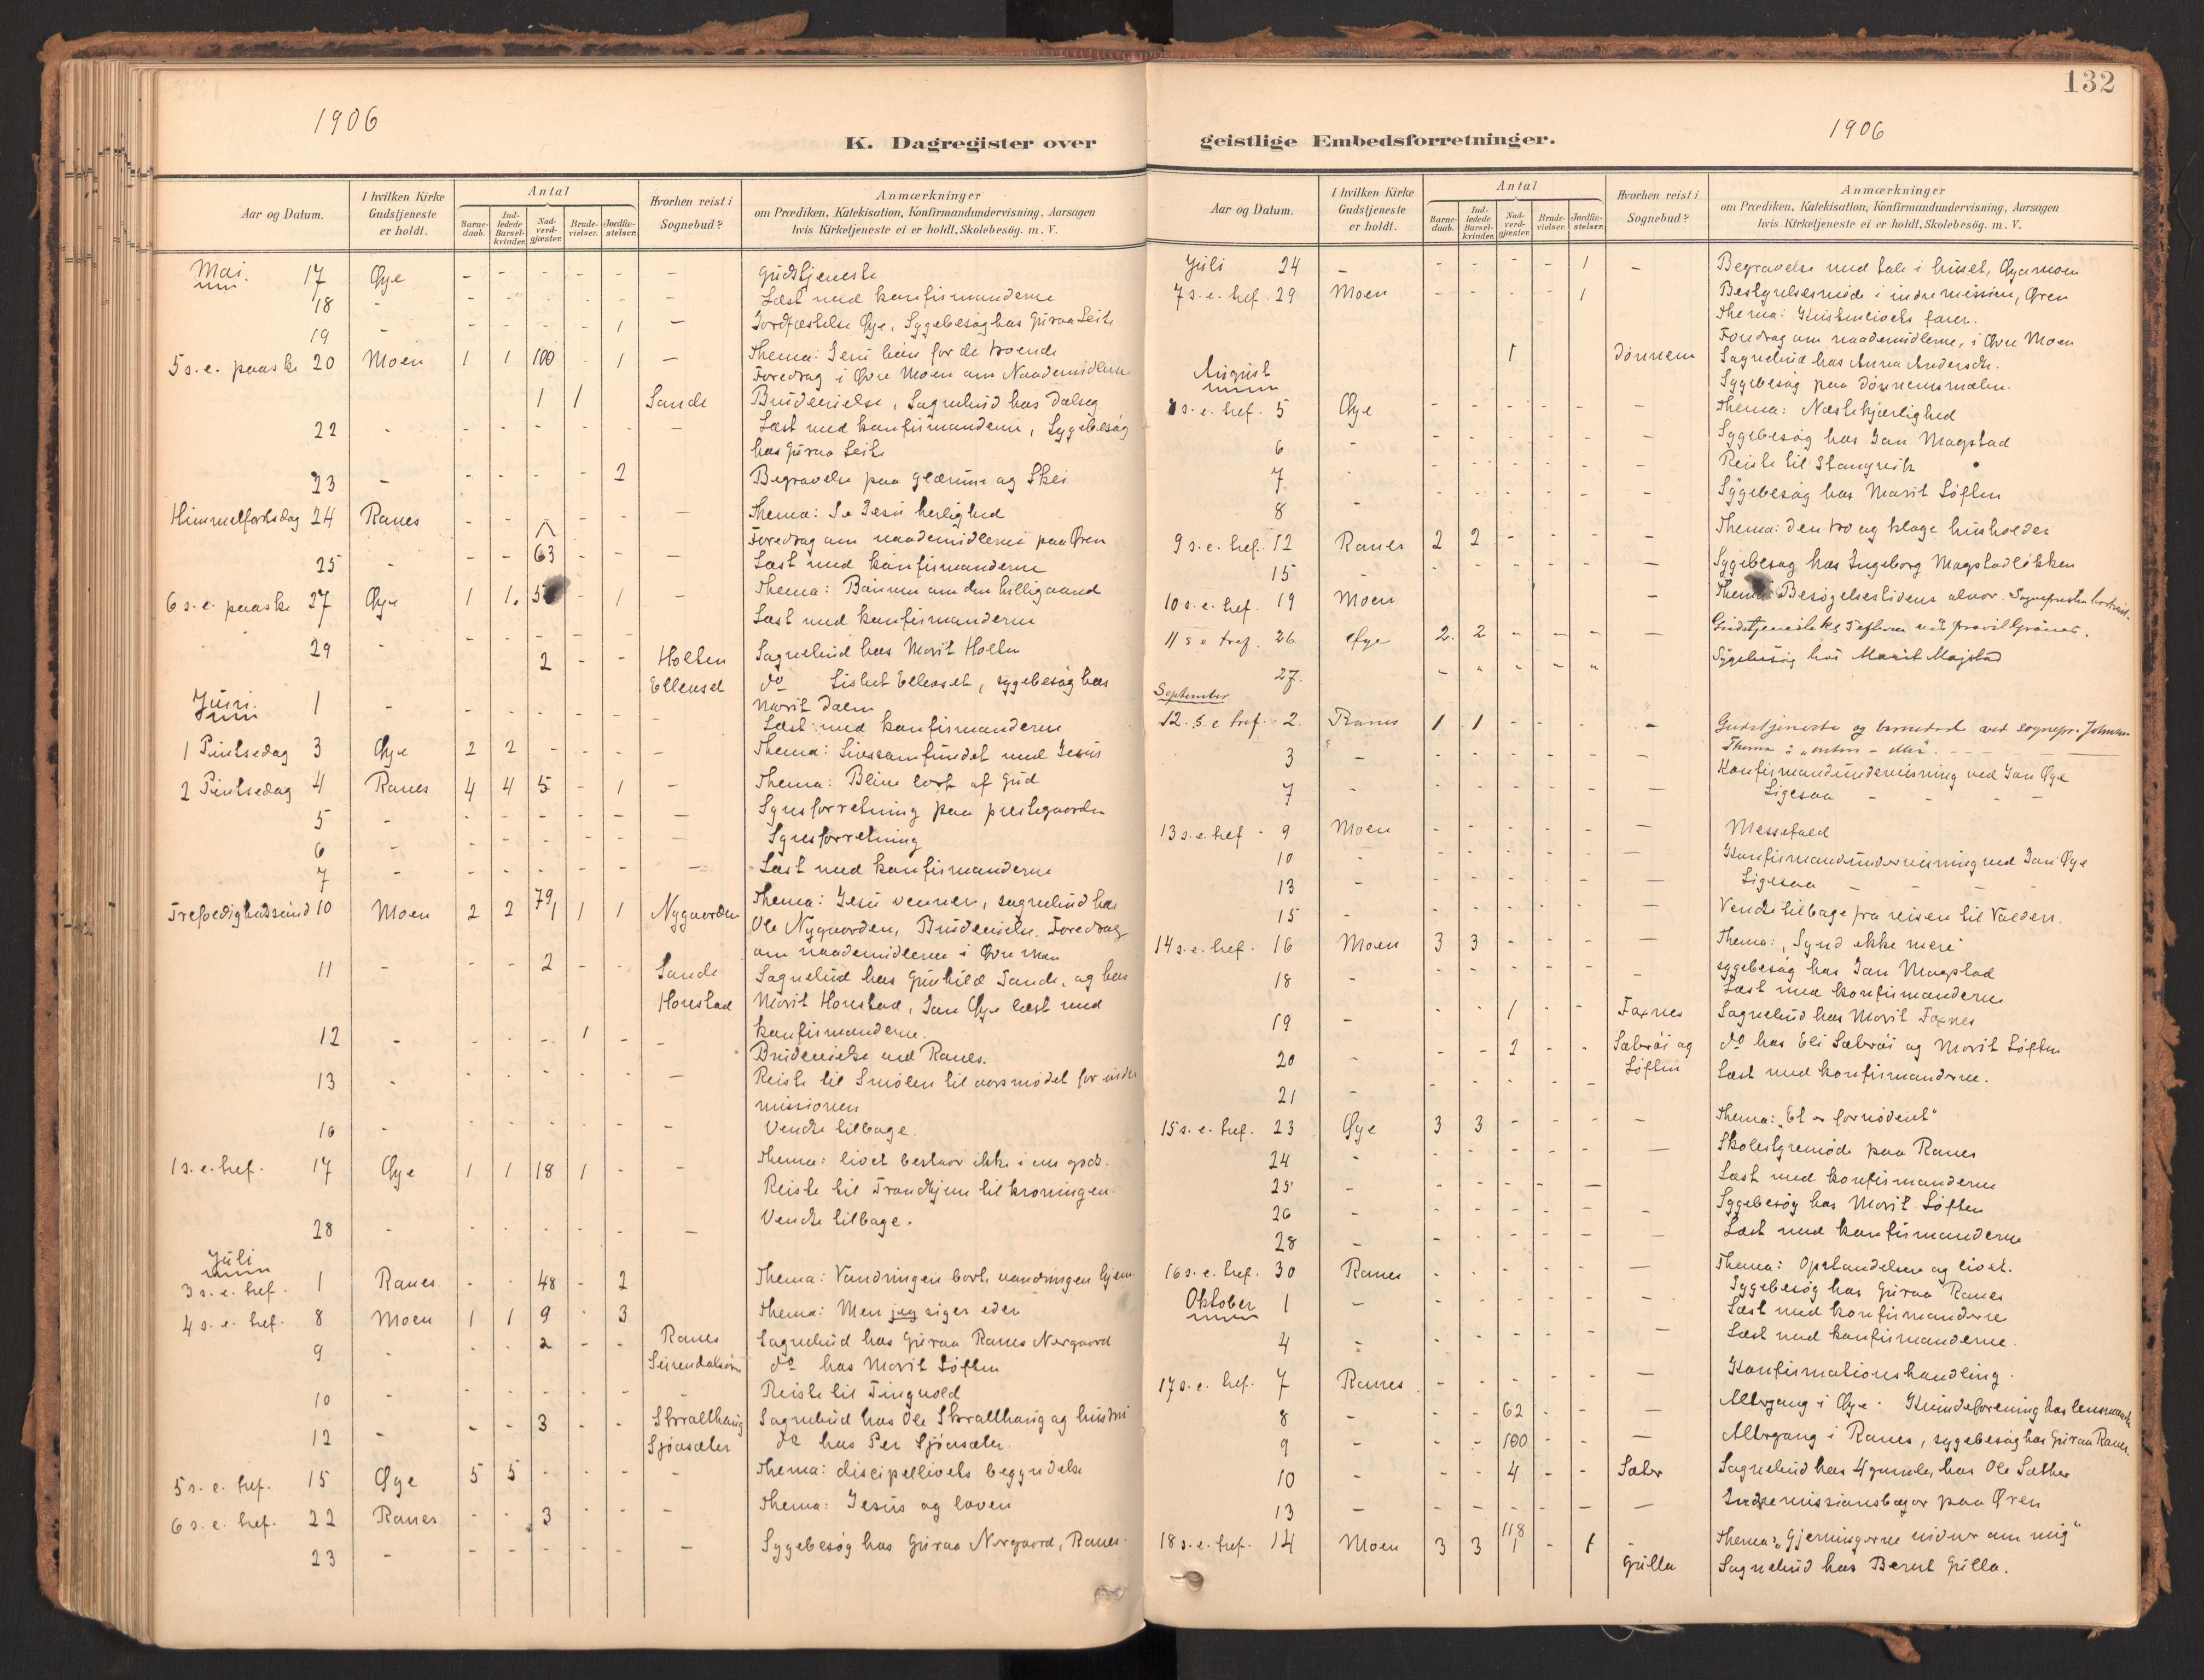 1906
K. Dagregister over
Aar og Datum. I hvilken Kirke Gudstjeneste er holdt. Antal Barne-daab. Ind-ledede Barsel-kvinder. Nad-verd-gjæster. Brude-vielser. Jordfæ-stelser. Hvorhen reist i Sognebud? Anmærkninger om Prædiken, Katekisation, Konfirmandundervisning, Aarsagen hvis Kirketjeneste ei er holdt, Skolebesög. m. V.
Mai. 17 Øye - - - - - - Gudstjeneste
18 - - - - - - - Læst med konfirmanderne
19 - - - - - 1 - Jordfæstelse Øye, Sygebesøg hos Guraa Seite
5 s. e. paaske 20 Moen 1 1 100 - 1 - Thema: Jesu bøn for de troende
Foredrag i Øvre Moen om Naademidlerne
1 1 Sande Brudevielse, Sognebud hos Dalseg
22 - - - - - - - Læst med konfirmanderne, Sygebesøg
hos Guraa Seite
23 - - - - - 2 Begravelse paa Glærum og Skei
Himmelfartsdag 24 Ranes - - - - - Thema: Se Jesu herlighed
Foredrag om naademidlerne paa Øren
25 - - - 63 - - - Læst med konfirmanderne
6 s. e. paaske 27 Øye 1 1. - 1 - Thema: Bønnen om den hellig aand
Læst med konfirmanderne
29 - - - 2 - - Holten Sognebud hos Marit Holten
Ellenset do Lisbet Ellenset, sygebesøg hos
Marit Dalen
Juni. 1 - - - - - - - Læst med konfirmanderne
1 Pintsedag 3 Øye 2 2 - - - - Thema: Livssamfundet med Jesus
2 Pintsedag 4 Ranes 4 4 5 - 1 - Thema: Blive lært af Gud
5 - - - - - - - Synsforretning paa prestegaarden
6 - - - - - - - Synsforretning
7 - - - - - - - Læst med konfirmanderne
Trefoldighedssund 10 Moen 2 2 79/1 1 1 Nygaarden Thema: Jesu venner, sognebud hos
Ole Nygaarden, Brudevielse. Foredrag
om naademidlerne i Øvre Moen
11 - - - 2 - - Sande Sognebud hos Gunhild Sande, og hos
Honstad Marit Honstad, Jan Øye læst med
konfirmanderne.
12 - - - - 1 - - Brudevielse ved Ranes.
13 - - - - - - - Reiste til Smølen til aarsmødet for indre
missionen
16 - - - - - - - Vendte tilbage.
1 s. e. tref. 17 Øye 1 1 18 1 - - Thema: livet bestaar ikke i en gods.
Reiste til Trondhjem til kroningen.
28 - - - - - - - Vendte tilbage.
Juli
3 s. e. tref. 1 Ranes - - 48 - 2 Thema: Vandringen bort, vandringen hjem
4 s. e. tref. 8 Moen 1 1 9 - 3 Thema: Men jeg siger eder
9 - - - 2 - - Ranes Sognebud hos Guraa Ranes Nergaard
do hos Marit Løften
10 - - - - - - - Reiste til Tingvold
12 - - - 3 - - Skralthaug Sognebud hos Ole Skralthaug og hustru
Sjøasæter do hos Per Sjøasæter.
5 s. e. tref. 15 Øye 5 5 - - - - Thema: discipellivets begyndelse
6 s. e. tref. 22 Ranes - - 3 - - - Thema: Jesus og loven
23 - - - - - - - Sygebesøg hos Guraa Nergaard, Ranes.
132
1906
geistlige Embedsforretninger.
Aar og Datum. I hvilken Kirke Gudstjeneste er holdt. Antal Barne-daab. Ind-ledede Barsel-kvinder. Nad-verd-gjæster. Brude-vielser. Jordfæ-stelser. Hvorhen reist i Sognebud? Anmærkninger om Prædiken, Katekisation, Konfirmandundervisning, Aarsagen hvis Kirketjeneste ei er holdt, Skolebesög. m. V.
Juli 24 - - - - - 1 - Begravelse med tale i huset, Øyamoen
7 s. e. tref. 29 Moen - - - - 1 Bestyrelsesmøde i indremission, Øren
Thema: Kristenlivets farer.
Foredrag om naademidlerne, i Øvre Moen
1 Dønnem Sognebud hos Anna Andersdtr.
Sygebesøg paa Dønnemsmælen.
August
8 s. e. tref. 5 Øye - - - - - - Thema: Næstekjærlighed
6 - - - - - - - Sygebesøg hos Jan Magstad
7 - - - - - - - Reiste til Stangvik
8 - - - - - - - Sygebesøg hos Marit Løften
9 s. e. tref. 12 Ranes 2 2 - - - - Thema: Den tro og kloge husholder
15 - - - - - - - Sygebesøg hos Ingeborg Magstadløkken
10 s. e. tref. 19 Moen - Thema: Besøgelsestidens alvor. Sognepresten bortreist.
11 s e tref. 26 Øye 2. 2 - - - - Gudstjeneste ved provst Grønes.
27. - - - - - Sygebesøg hos Marit Magstad
September
12. s e tref. 2. Ranes 1 1 - - - - Gudstjeneste og barnedaab ved sognepr. Johnsen
Thema: "enten - eller".
3 - Konfirmandundervisning ved Jan Øye
7 - - - - - - - Ligesaa - - -
13 s. e. tref - 9 Moen - - - - - - Messefald
10 - - - - - - - Konfirmandundervisning ved Jan Øye
13 - - - - - - - Ligesaa - - -
15 - - - - - - - Vendte tilbage fra reisen til Valders.
14 s. e. tref. 16 Moen 3 3 - - - - Thema: "Synd ikke mere"
18 - - - - - - - sygebesøg hos Jan Magstad
Læst med konfirmanderne
19 - 1 - - Foxnes Sognebud hos Marit Foxnes
20 - - - 2 - - Sæterøi og Løften do hos Eli Sæterøi og Marit Løften
21 - - - - - - Læst med konfirmanderne.
15 s. e. tref. 23 Øye 3 3 - - - - Thema: "Et er fornødent"
24 - - - - - - - Skolestyremøde paa Ranes
25 - - - - - - Læst med konfirmanderne
26 - - - - - - - Sygebesøg hos Marit Løften
28 - - - - - - - Læst med konfirmanderne
16 s. e. tref. 30 Ranes - - - - - - Thema: Opstandelsen og livet.
Sygebesøg hos Guraa Ranes
Oktober 1 - Læst med konfirmanderne
4 - - Læst med konfirmanderne.
17 s. e. tref. 7 Ranes - - - - - - Konfirmationshandling.
8 - - - 62 - - - Altergang i Øye. Kvindeforening hos lensmanden
9 - - - 100 - - - Altergang i Ranes, sygebesøg hos Guraa Ranes.
10 - - - 4 - - Sæter Sognebud hos 4 gamle, hos Ole Sæther
13 - - - - - - - Indremissionsbazar paa Øren
18 s. e. tref. 14 Moen 3 3 118/1 - 1 - Thema: "Gjerningerne vidner om mig"
Gulla Sognebud hos Bernt Gulla.